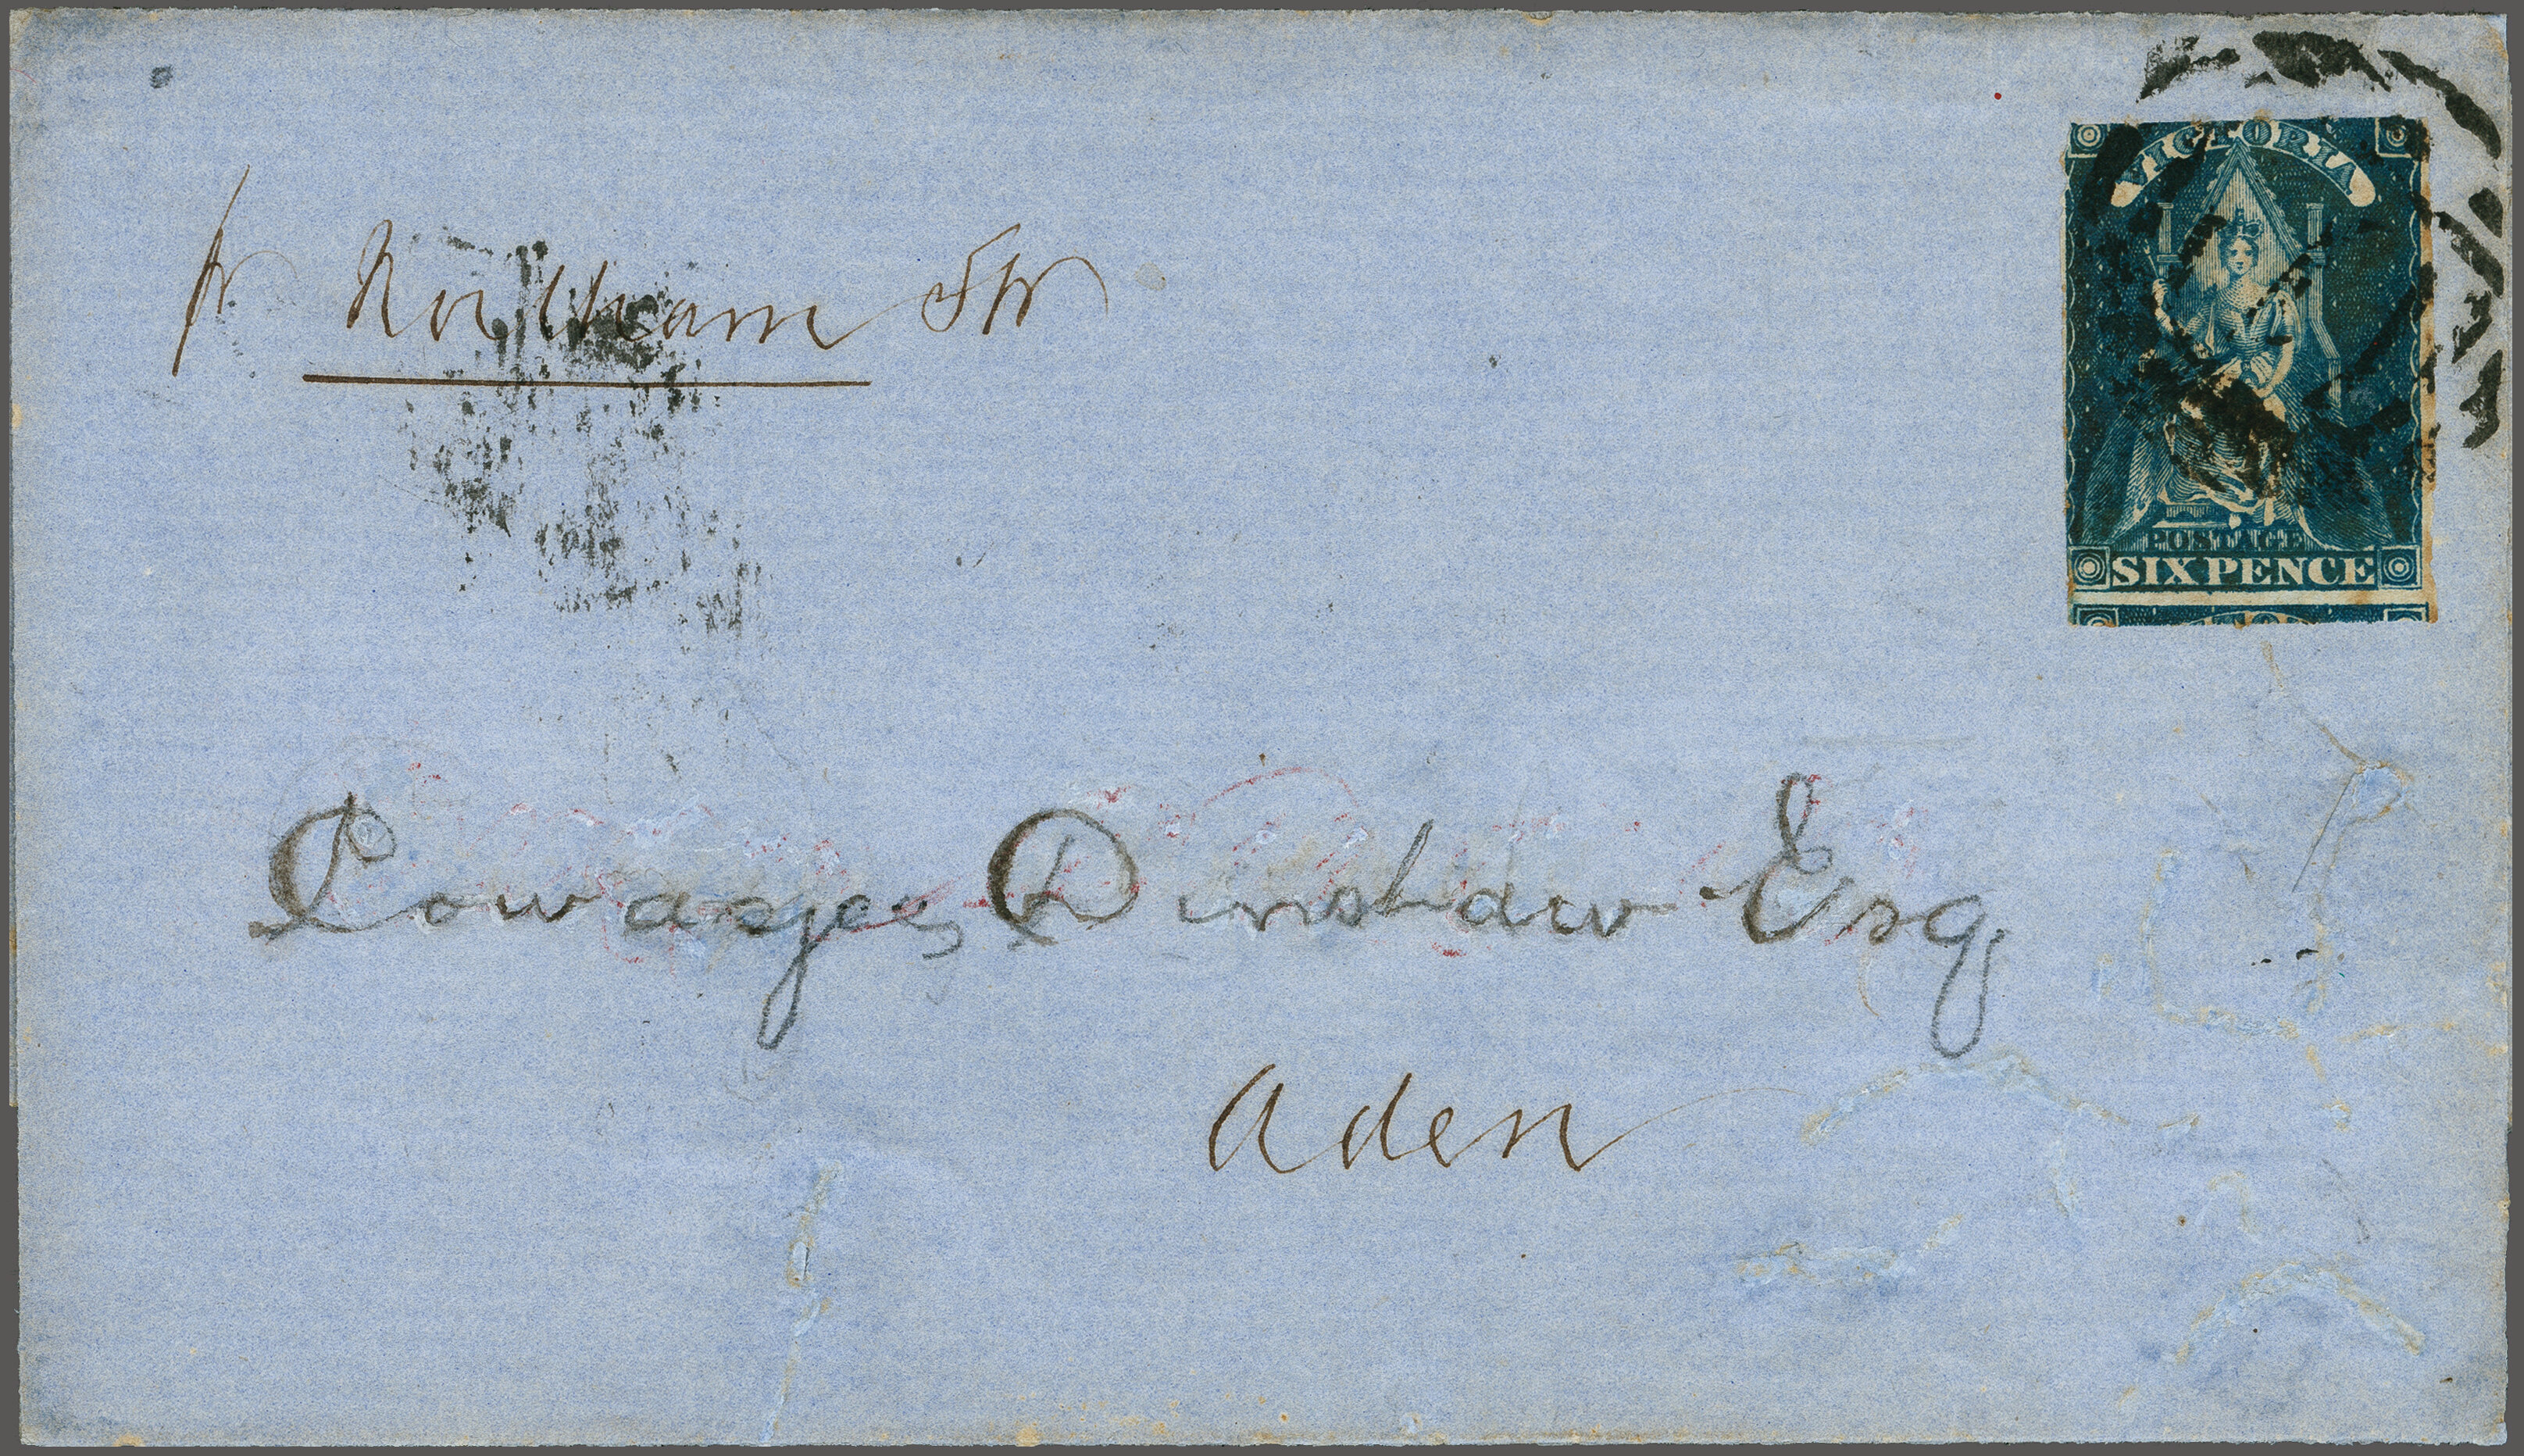 VICTORIA
POSTAGE
SIX PENCE
pr Northam Str
Cowasjee Dinshaw Esq
Aden